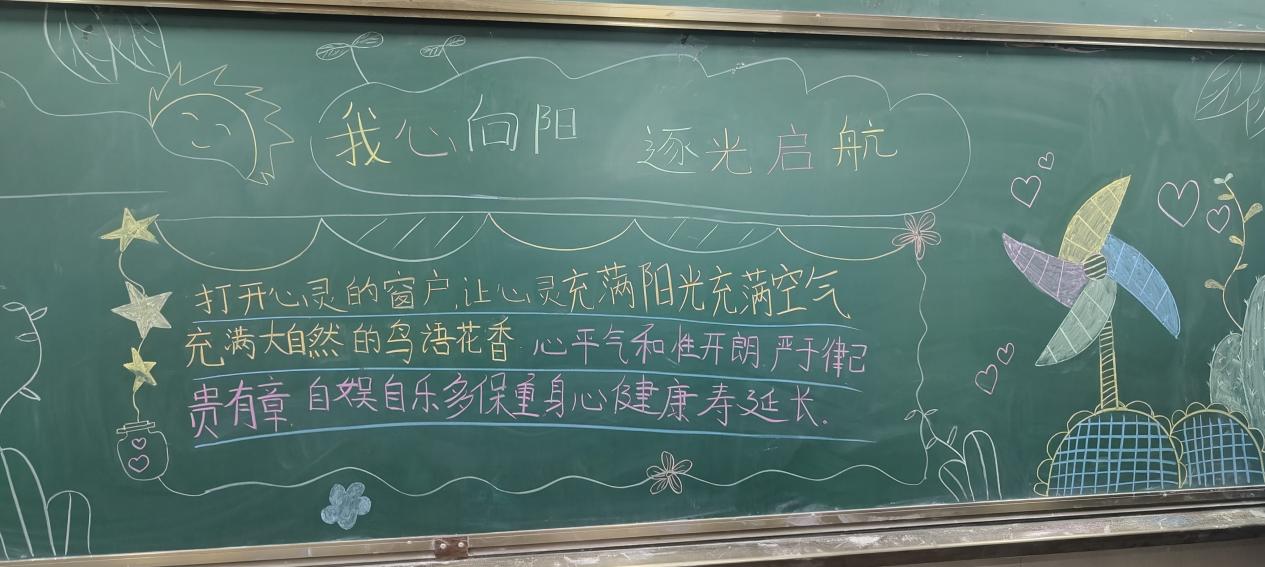 我心向阳 逐光启航
打开心灵的窗户,让心灵充满阳光充满空气
充满大自然的鸟语花香 心平气和准开朗 严于律己
贵有章 自娱自乐多保重身心健康寿延长.